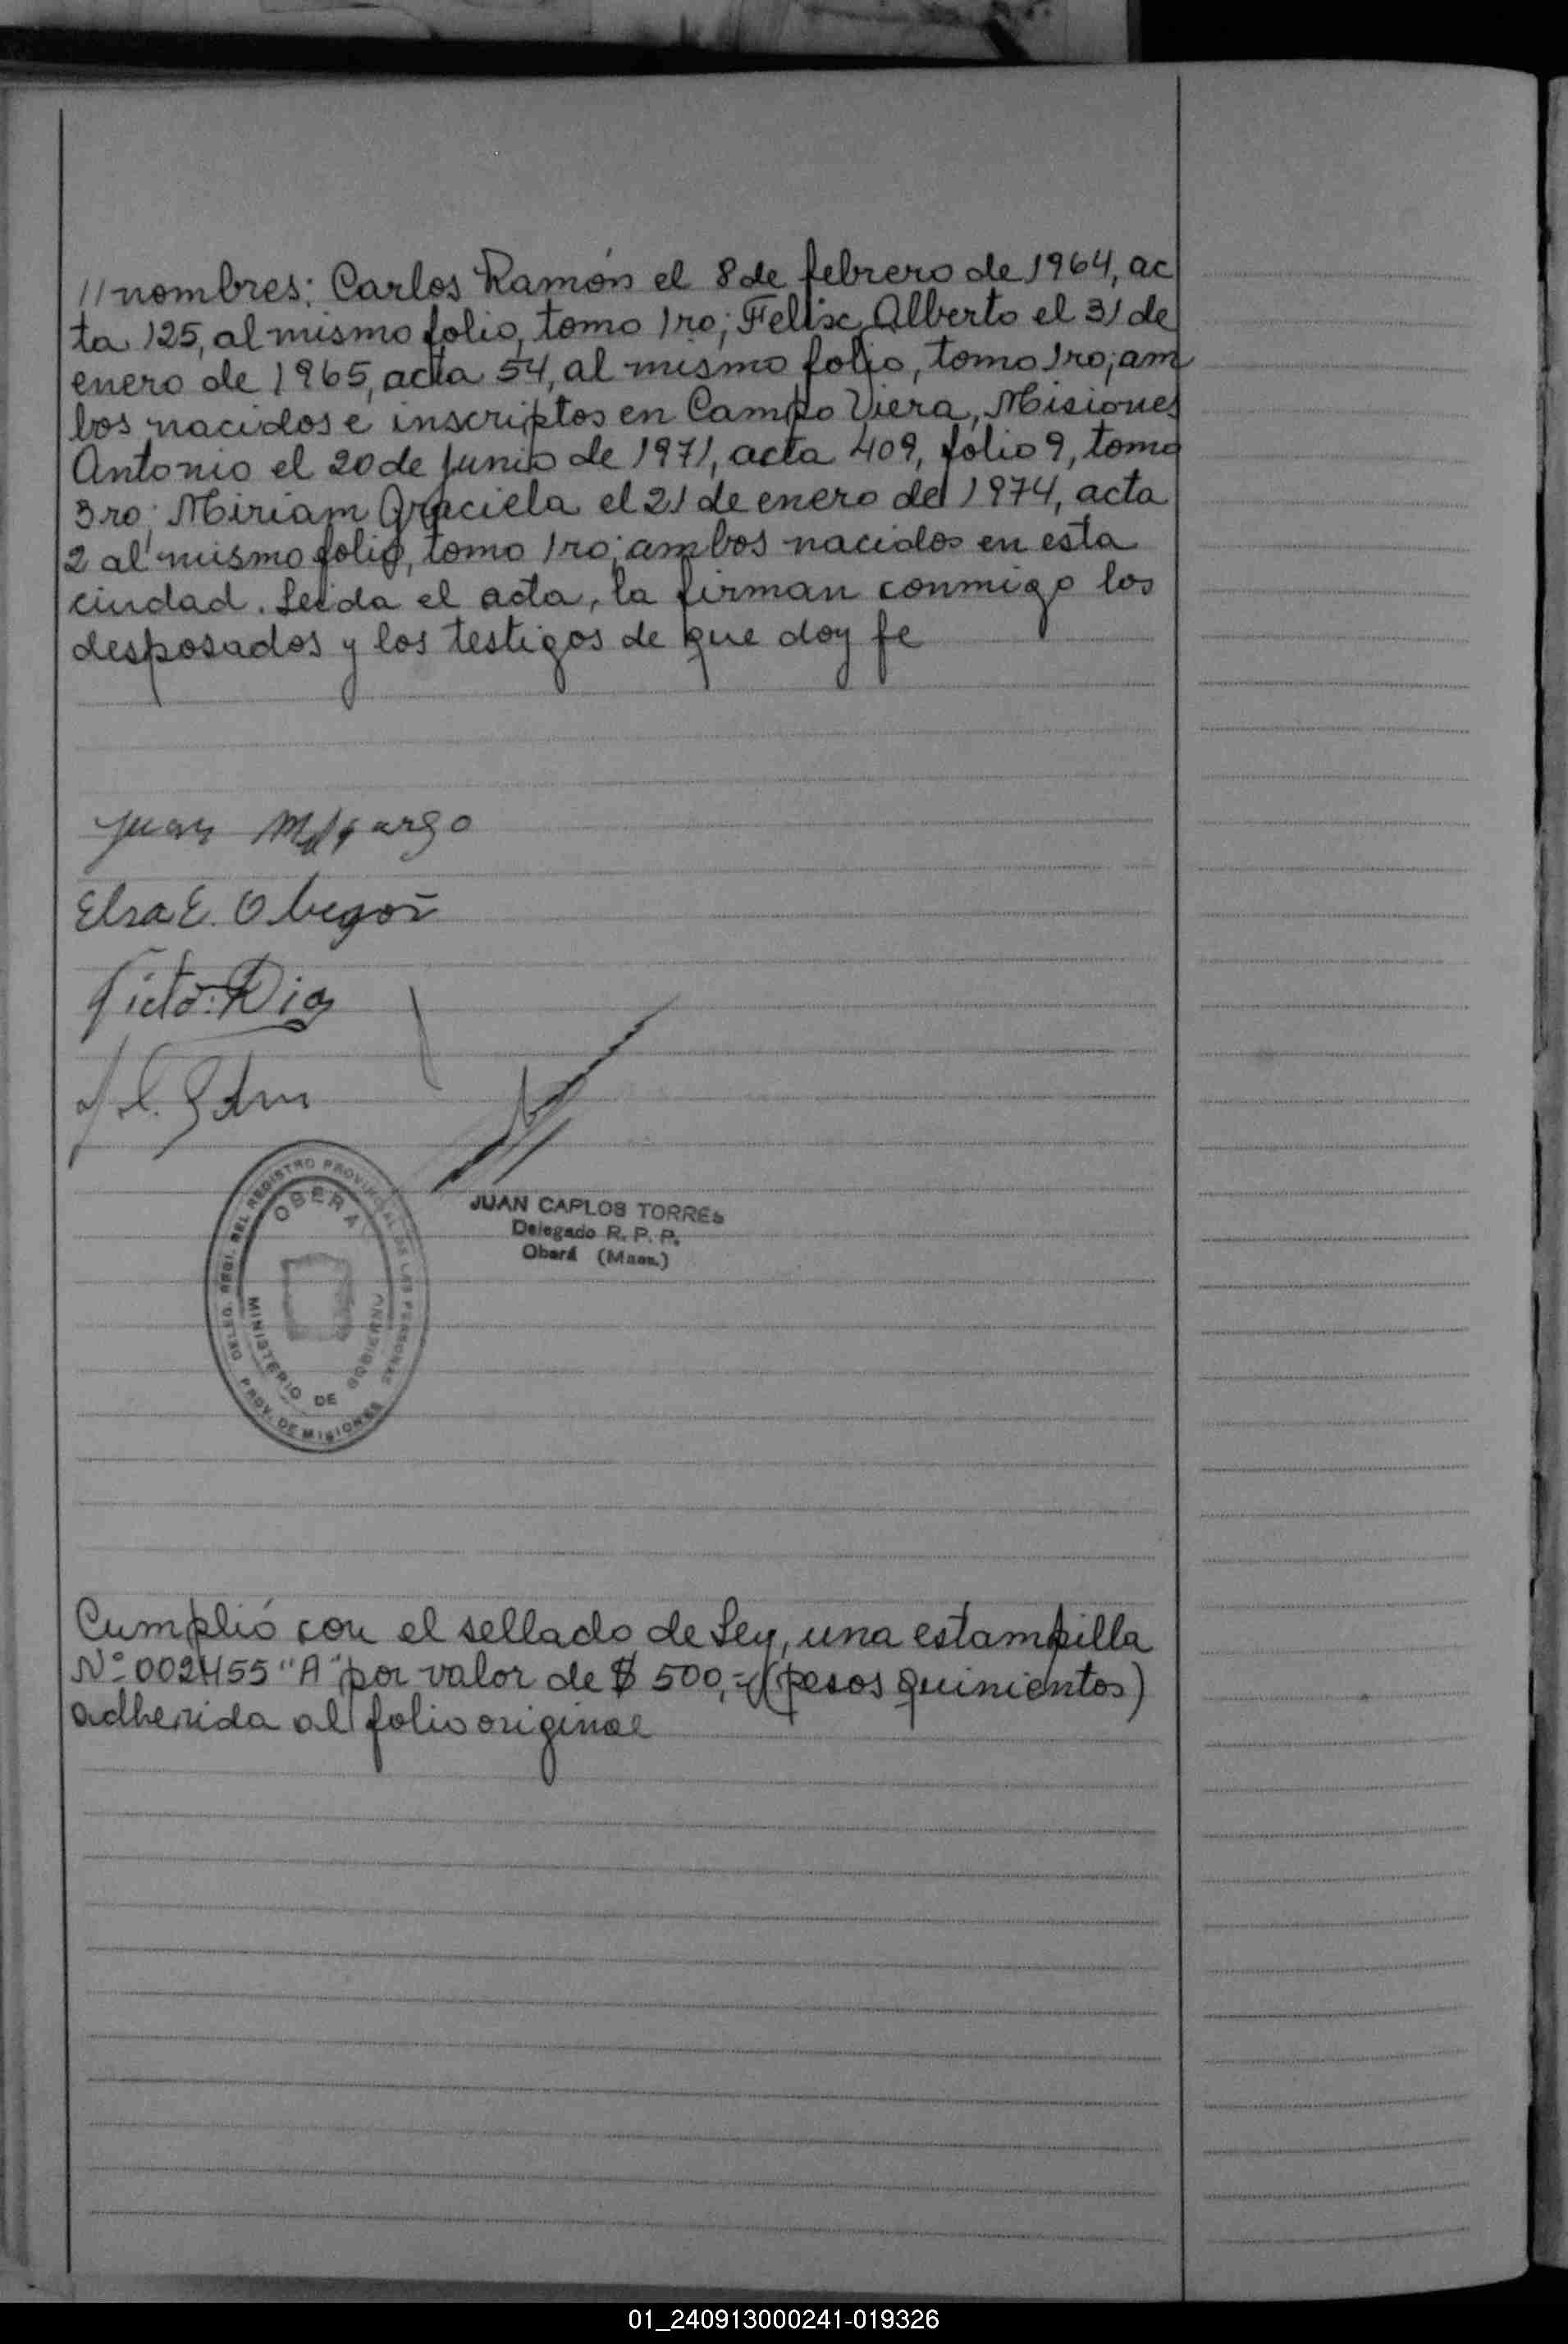 //nombres: Carlos Ramón el 8 de febrero de 1964, ac
ta 125, al mismo folio, tomo 1ro; Felix Alberto el 31 de
enero de 1965, acta 54, al mismo folio, tomo 1ro; am
bos nacidos e inscriptos en Campo Viera, Misiones
Antonio el 20 de junio de 1971, acta 409, folio 9, tomo
3ro; Miriam Graciela el 21 de enero de 1974, acta
2 al mismo folio, tomo 1ro; ambos nacidos en esta
ciudad. Leida el acta, la firman conmigo los
desposados y los testigos de que doy fe
Juan
Elsa E. Obregon
DELEG. REGI. DEL REGISTRO PROVINCIAL DE LAS PERSONAS
OBERA
MINISTERIO DE GOBIERNO
PROV. DE MISIONES
JUAN CARLOS TORRES
Delegado R. P. P.
Oberá (Mnes.)
Cumplió con el sellado de Ley, una estampilla
Nº 002455 "A" por valor de $ 500,= (pesos quinientos)
adherida al folio original
01_240913000241-019326